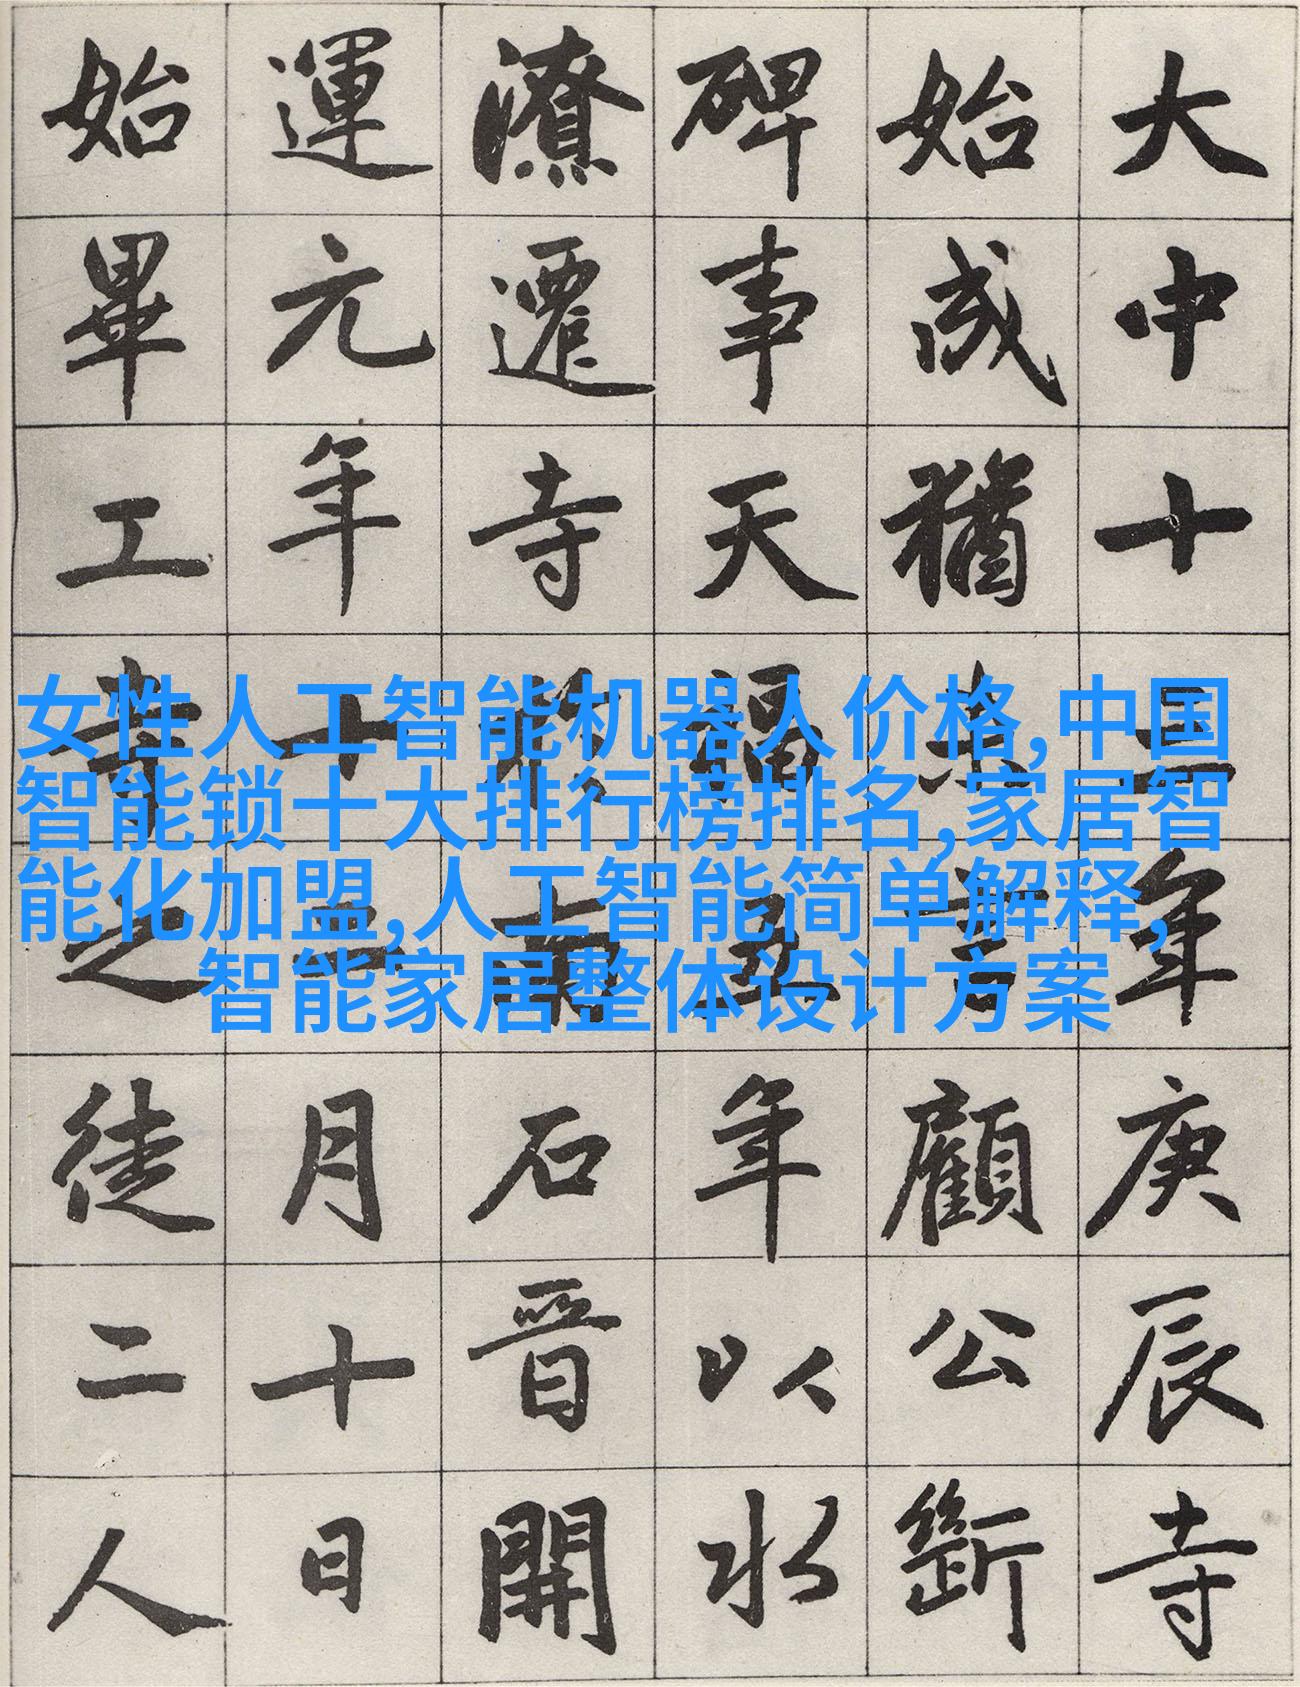 大中十三年庚辰寺
始成猶顧公斲
碑事天福五年以水
潦遷寺於南石晉開
運元年十二月十日
始畢工寺之徒二人
女性人工智能机器人价格,中国
智能锁十大排行榜排名,家居智
能化加盟,人工智能简单解释,
智能家居整体设计方案